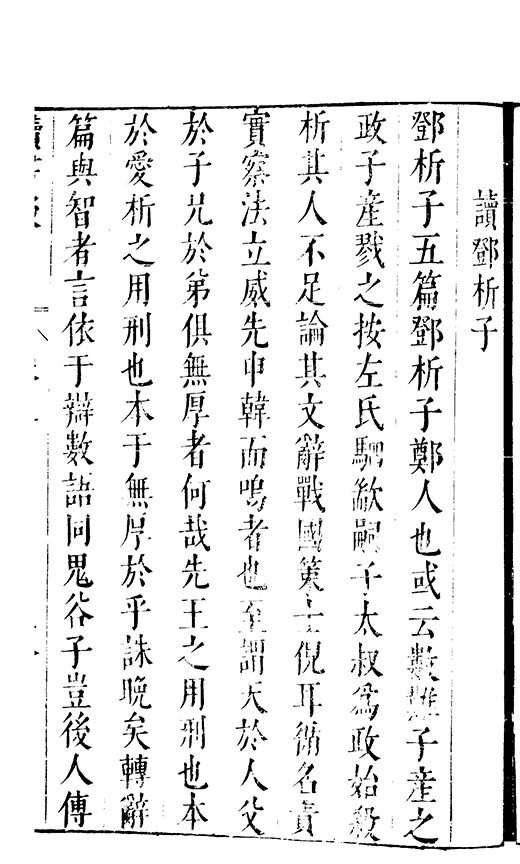 讀鄧析子
鄧析子五篇鄧析子鄭人也或云數難子產之
政子產戮之按左氏駟歂嗣子太叔爲政始殺
析其人不足論其文辭戰國策士倪耳循名責
實察法立威先申韓而鳴者也至謂天於人父
於子兄於弟俱無厚者何哉先王之用刑也本
於愛析之用刑也本于無厚於乎誅晚矣轉辭
篇與智者言依于辯數語同鬼谷子豈後人傅